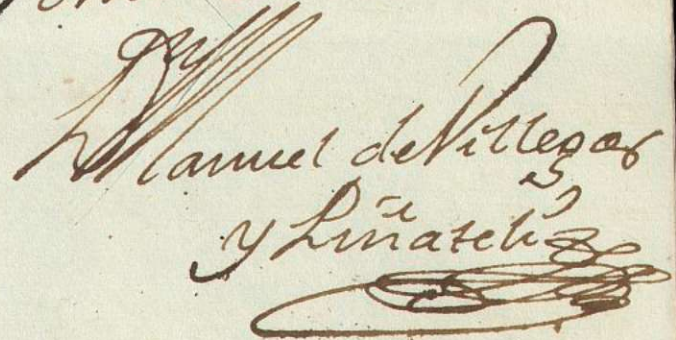 Dn Manuel de Villegas
y Piñateli